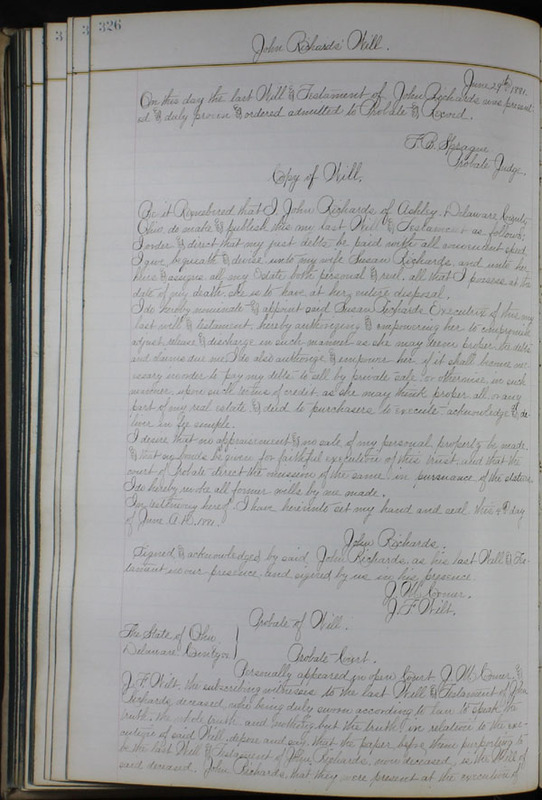 3 3 326
John Richards' Will.
June 24th 1881.
On this day the last Will & Testament of John Richards was present-
ed & duly proven & ordered admitted to Probate & Record.
F. B. Sprague
Probate Judge.
Copy of Will.
Be it Remembered that I, John Richards of Ashley, Delaware County
Ohio, do make & publish this my last Will & Testament as follows:
I order & direct that my just debts be paid with all convenient speed.
I give, bequeath & devise unto my wife Susan Richards, and unto her
heirs & assigns all my Estate both personal & real, all that I possess at the
date of my death she is to have at her entire disposal.
I do hereby nominate & appoint said Susan Richards Executrix of this my
last will & testament, hereby authorizing & empowering her to compromise
adjust, release & discharge in such manner as she may deem proper the debts
and claims due me. I do also authorize & empower her if it shall become nec-
essary in order to pay my debts to sell by private sale or otherwise in such
manner, upon such terms of credit, as she may think proper all or any
part of my real estate & deed to purchasers to execute acknowledge & de-
liver in fee simple.
I desire that no appraisement & no sale of my personal property be made
& that no bonds be given for faithful execution of this trust and that the
court of Probate direct the omission of the same in pursuance of the statute.
I do hereby revoke all former wills by me made.
In testimony hereof I have hereunto set my hand and seal this day
of June A.D. 1881.
John Richards.
Signed & acknowledged by said John Richards, as his last Will & Tes-
tament in our presence, and signed by us in his presence.
J. M. Comer.
J. F. Wilt.
Probate of Will.
The State of Ohio
Delaware County ss
Probate Court.
Personally appeared in open Court J. M. Comer &
J. F. Wilt, the subscribing witnesses to the last Will & Testament of John
Richards, deceased, who being duly sworn according to law to speak the
truth, the whole truth and nothing but the truth, in relation to the exe-
cution of said Will, depose and say, that the paper before them purporting to
be the last Will & Testament of John Richards, now deceased, is the Will of
said deceased, John Richards, that they were present at the execution of